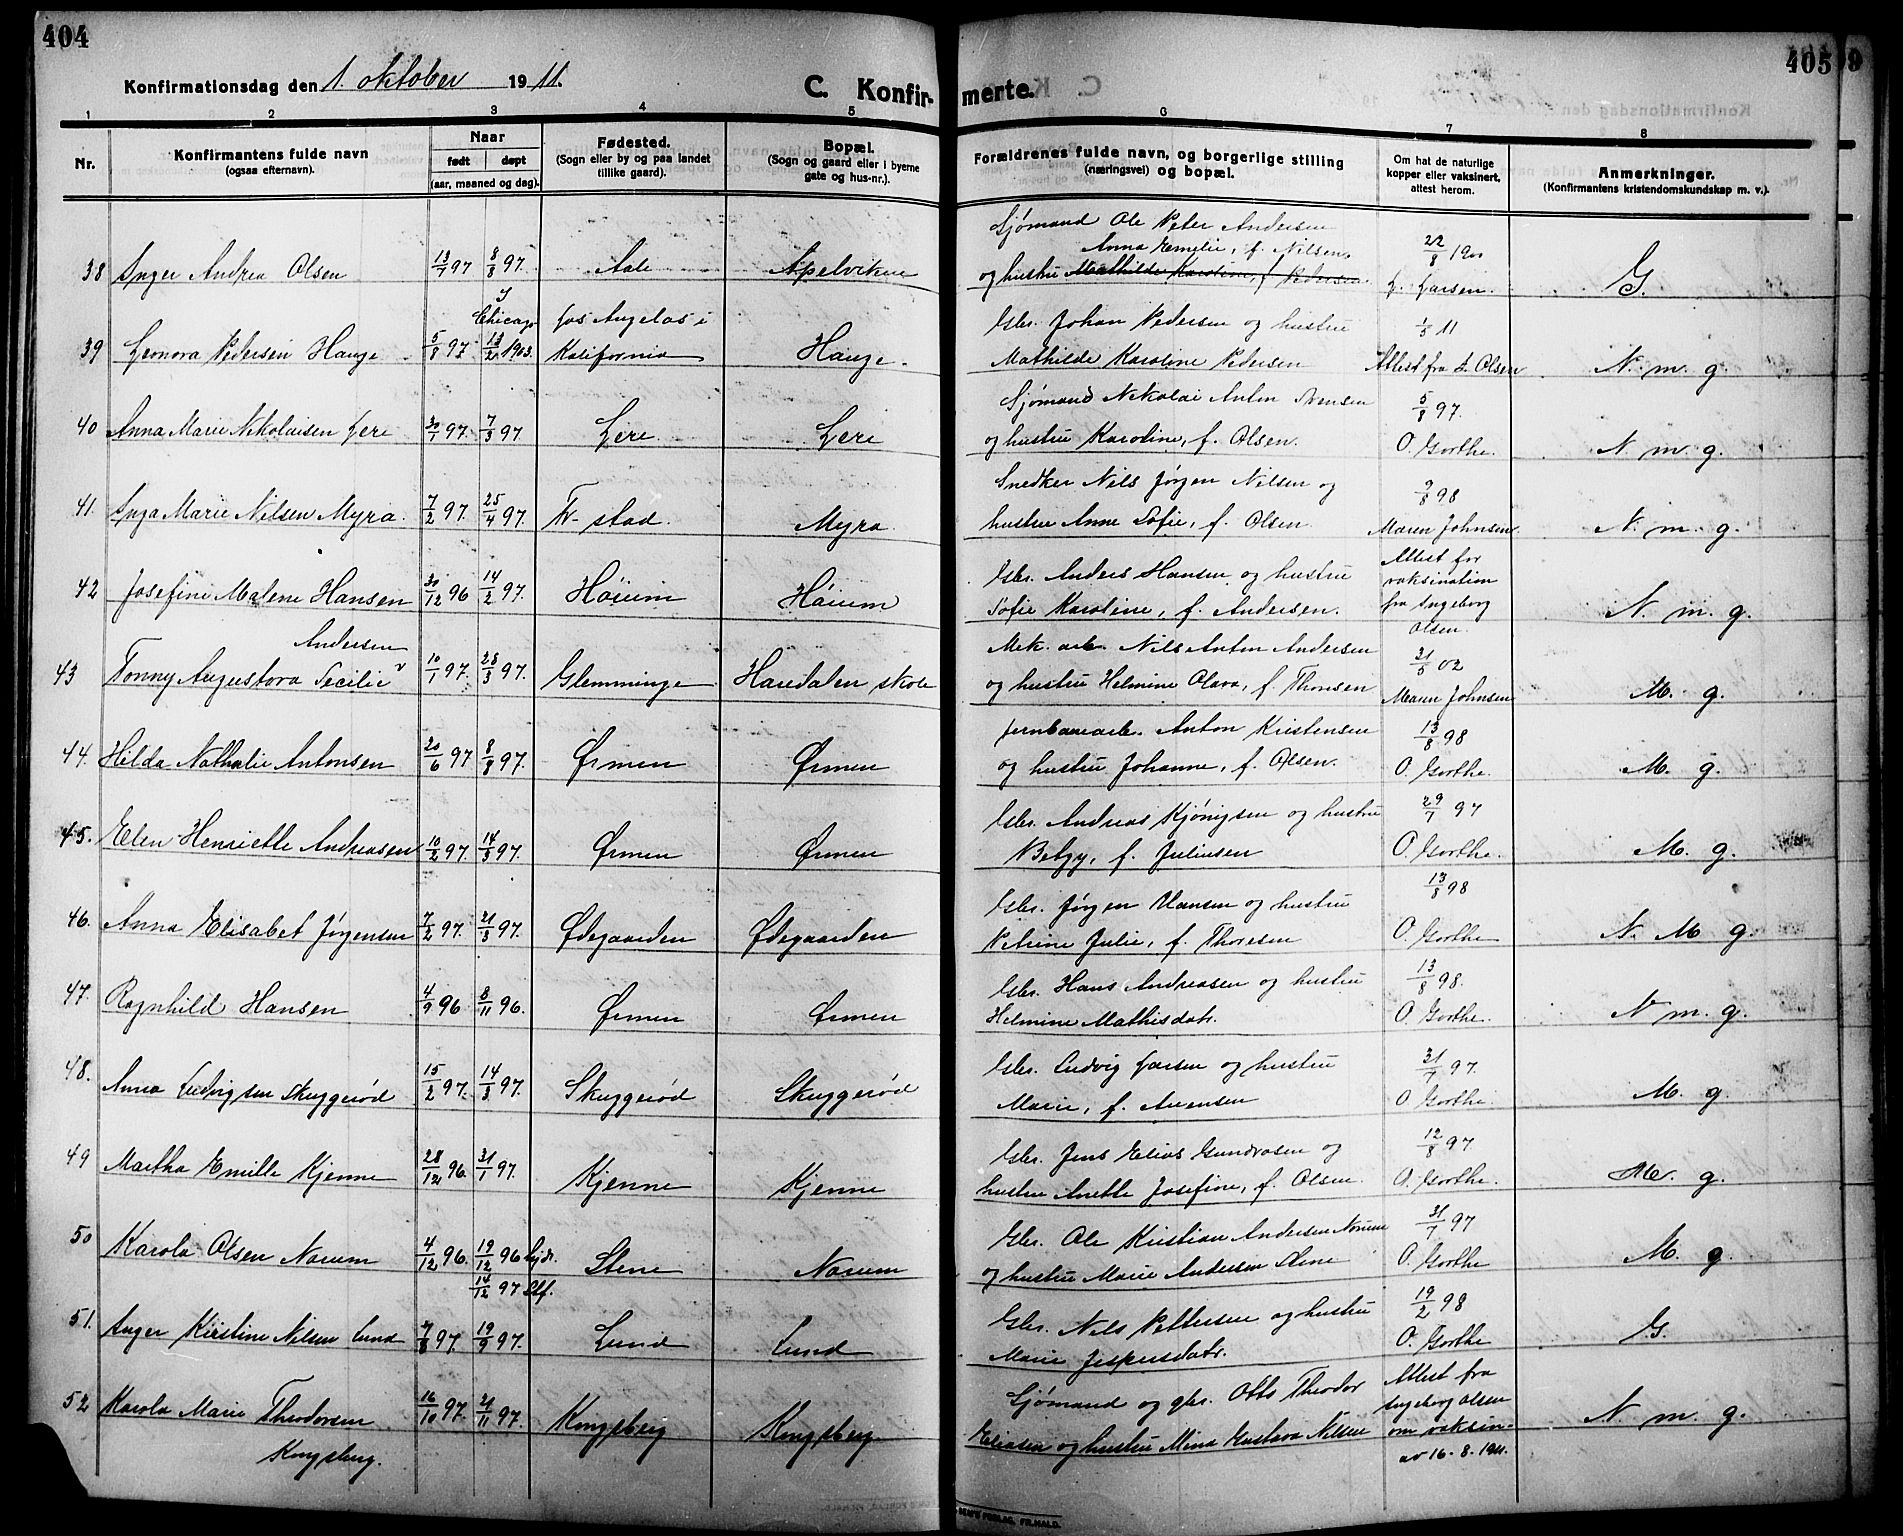 404
405
9
Konfirmationsdag den 1. oktober 1911.
C. Konfir-
merte.
1 2 3 4 5 6 7 8
Nr.
Konfirmantens fulde navn
(ogsaa efternavn).
Naar
født
døpt
(aar, maaned og dag).
Fødested.
(Sogn eller by og paa landet
tillike gaard).
Bopæl.
(Sogn og gaard eller i byerne
gate og hus-nr.).
Forældrenes fulde navn, og borgerlige stilling
(næringsvei) og bopæl.
Om hat de naturlige
kopper eller vaksinert,
attest herom.
Anmerkninger.
(Konfirmantens kristendomskundskap m. v.).
Sjømand Ole Peter Andersen
Anna Emelie, f. Nilsen
38 Inger Andrea Olsen 13/7 97 8/8 97. Aale Apelviken og hustru Mathilde Karoline, f. Pedersen 22/8 1900 L. Larsen. G.
I Chicago Los Angelos i Gbr. Johan Pedersen og hustru 1/5 11
39 Leonora Pedersen Hauge 5/8 97 13/2 1903. Kalifornia Hauge. Mathilde Karoline Pedersen Attest fra I. Olsen N. m. g.
Sjømand Nikolai Anton Svensen 5/8 97.
40 Anna Marie Nikolaisen Lere 30/1 97. 7/3 97 Lere Lere og hustru Karoline, f. Olsen. O. Gorthe. N. m. g.
Snedker Nils Jørgen Nilsen og 9/8 98
41. Inga Marie Nilsen Myra. 7/2 97. 25/4 97. Fr-stad. Myra hustru Anne Sofie, f. Olsen Maren Johnsen. N. m. g.
Gbr. Anders Hansen og hustru Attest for
vaksination
42 Josefine Malene Hansen 30/12 96 14/2 97. Høium Høium Sofie Karoline, f. Andersen. fra Ingeborg
Olsen. N. m. g.
Andersen Mek. arb. Nils Anton Andersen 31/5 02
43 Tonny Augustora Cecilie 10/1 97. 28/3 97. Glemminge Haredalen skole og hustru Helmine Olava, f. Thorsen Maren Johnsen M. g.
Jernbanearb. Anton Kristensen 13/8 98
44. Hilda Nathalie Antonsen 20/6 97 8/8 97. Ørmen Ørmen og hustru Johanne, f. Olsen. O. Gorthe. M. g.
Gbr. Andreas Kjønigsen og hustru 29/7 97
45. Elen Henriette Andreasen 10/2 97. 14/3 97. Ørmen Ørmen Betzy, f. Juliusen O. Gorthe. M. g.
Gbr. Jørgen Hansen og hustru 13/8 98
46. Anna Elisabet Jørgensen 7/2 97. 21/3 97. Ødegaarden Ødegaarden Petrine Julie, f. Thoresen O. Gorthe N. M. g.
Gbr. Hans Andreasen og hustru 13/8 98.
47. Ragnhild Hansen 4/9 96 8/11 96. Ørmen Ørmen Helmine Mathisdatr. O. Gorthe. N. m. g.
Gbr. Ludvig Larsen og hustru 31/7 97.
48. Anna Ludvigsen Skuggerød 15/2 97. 14/3 97. Skuggerød Skuggerød Marie, f. Arensen O. Gorthe. M. g.
Gbr. Jens Elias Gundrosen og 12/8 97.
49 Martha Emille Kjenne 28/12 96. 31/1 97. Kjenne Kjenne hustru Anette Josefine, f. Olsen. O. Gorthe. M. g.
Gbr. Ole Kristian Andersen Norum 31/7 97
50 Karola Olsen Norum 4/12 96. 19/12 96 hjdr. Stene Norum og hustru Marie Andersen Stene O. Gorthe M. g.
14/12 97 stf.
Gbr. Nils Pettersen og hustru 19/2 98
51. Inger Kirstine Nilsen Lund 7/8 97. 19/9 97. Lund Lund Marie Jespersdatr. O. Gorthe G.
Sjømand og gbr. Otto Theodor Attest fra
Ingeborg Olsen
52 Karola Marie Theodorsen 16/10 97. 21/11 97. Kongsberg Kongsberg Eliasen og hustru Mina Gustava Nilsen om vaksin. N. m. g.
Kongsberg. av 16-8-1911.